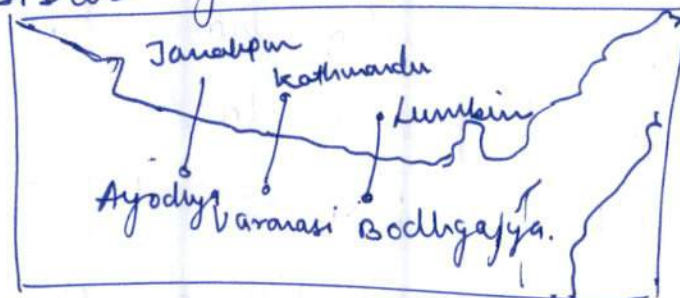 Janakpur
Kathmandu
Lumbini
Ayodhya
Varanasi
Bodhgajya.